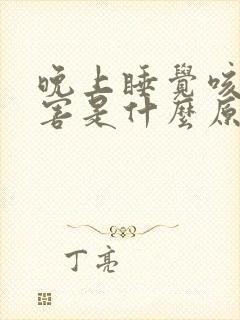 晚上睡覺咳
害是什麼原
丁亮